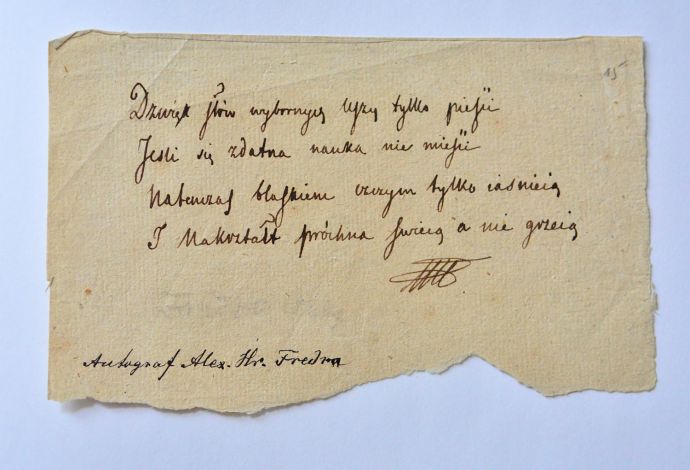 15
Dzwięk słów wybornych Uszy tylko pieści
Jeśli się zdatna nauka nie mieści
Natenczas blaskiem czczym tylko iaśnieią
I Nakształt próchna świecą a nie grzeią
Autograf Alex. Hr. Fredra